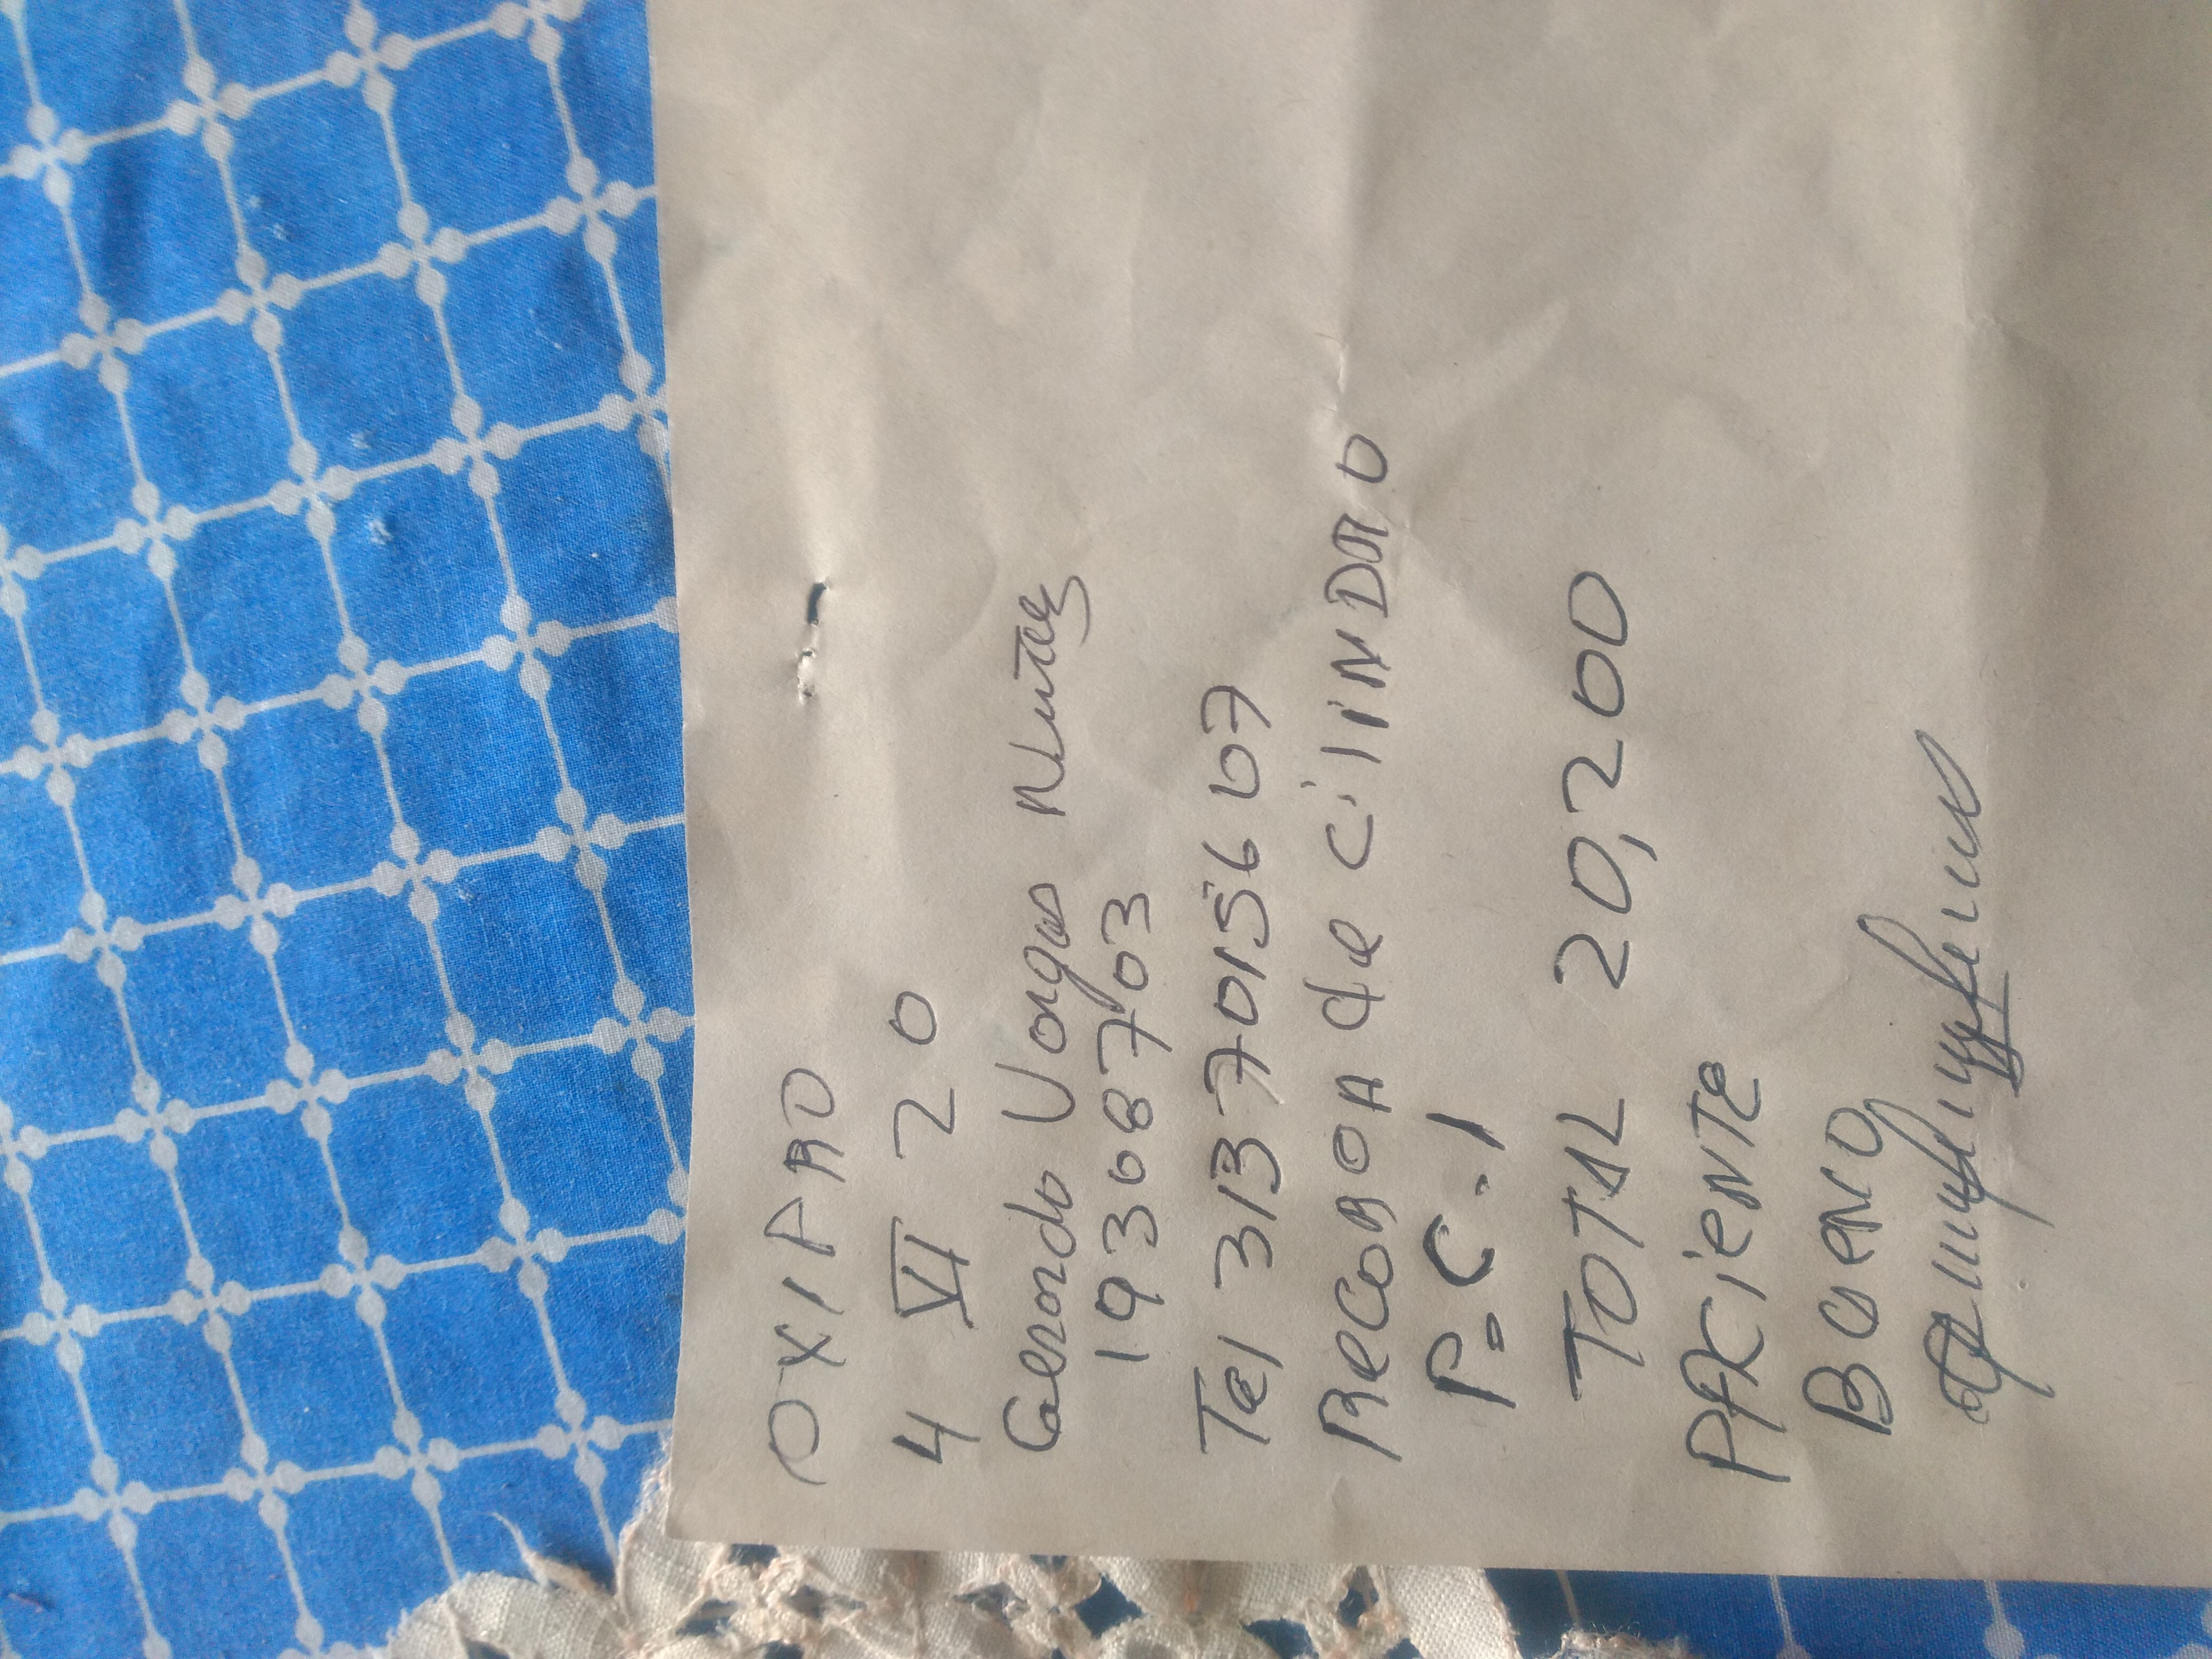 OXIPRO
4 VI 20
Gerardo Vargas Nuñez
19368703
Tel 3137015667
RecogiDA de CiliNDRO
P.C. 1
TOTAL 20,200
PACieNTe
BueNo